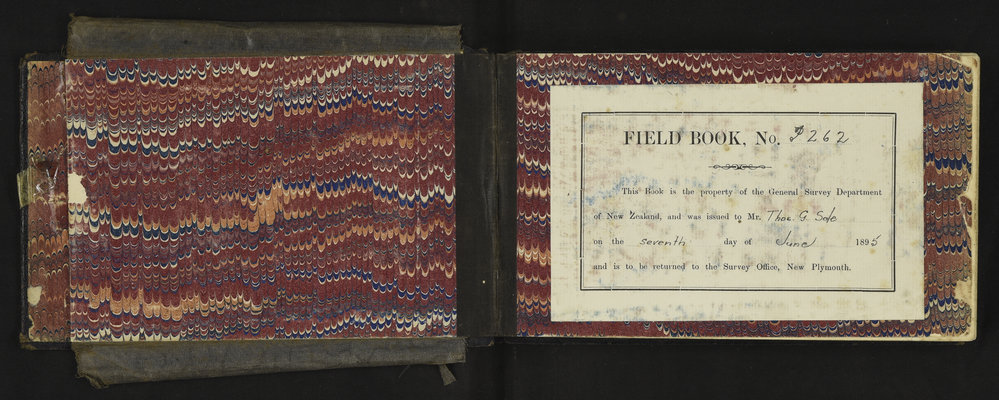 FIELD BOOK, No. P262
This Book is the property of the General Survey Department
of New Zealand, and was issued to Mr. Thos. G. Sole
on the seventh day of June 1895
and is to be returned to the Survey Office, New Plymouth.